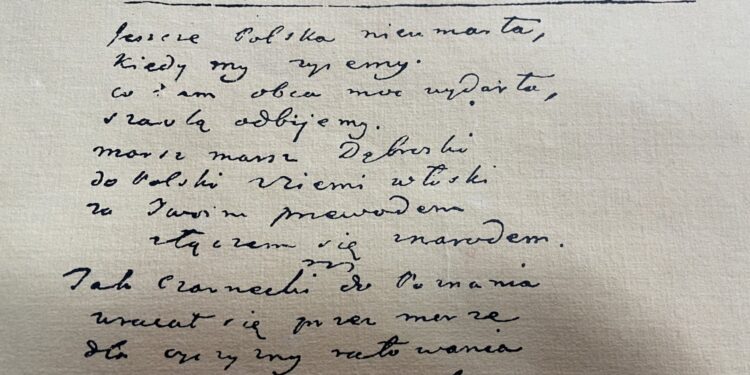 Jeszcze Polska nieumarła,
kiedy my żyiemy.
co nam obca moc wydarła,
szablą odbijemy.
marsz marsz Dąbroski
do Polski z ziemi włoski
za Twoim przewodem
złączem się znarodem.
Jak Czarnecki do Poznania
wracał się przez morze
dla oyczyzny ratowania